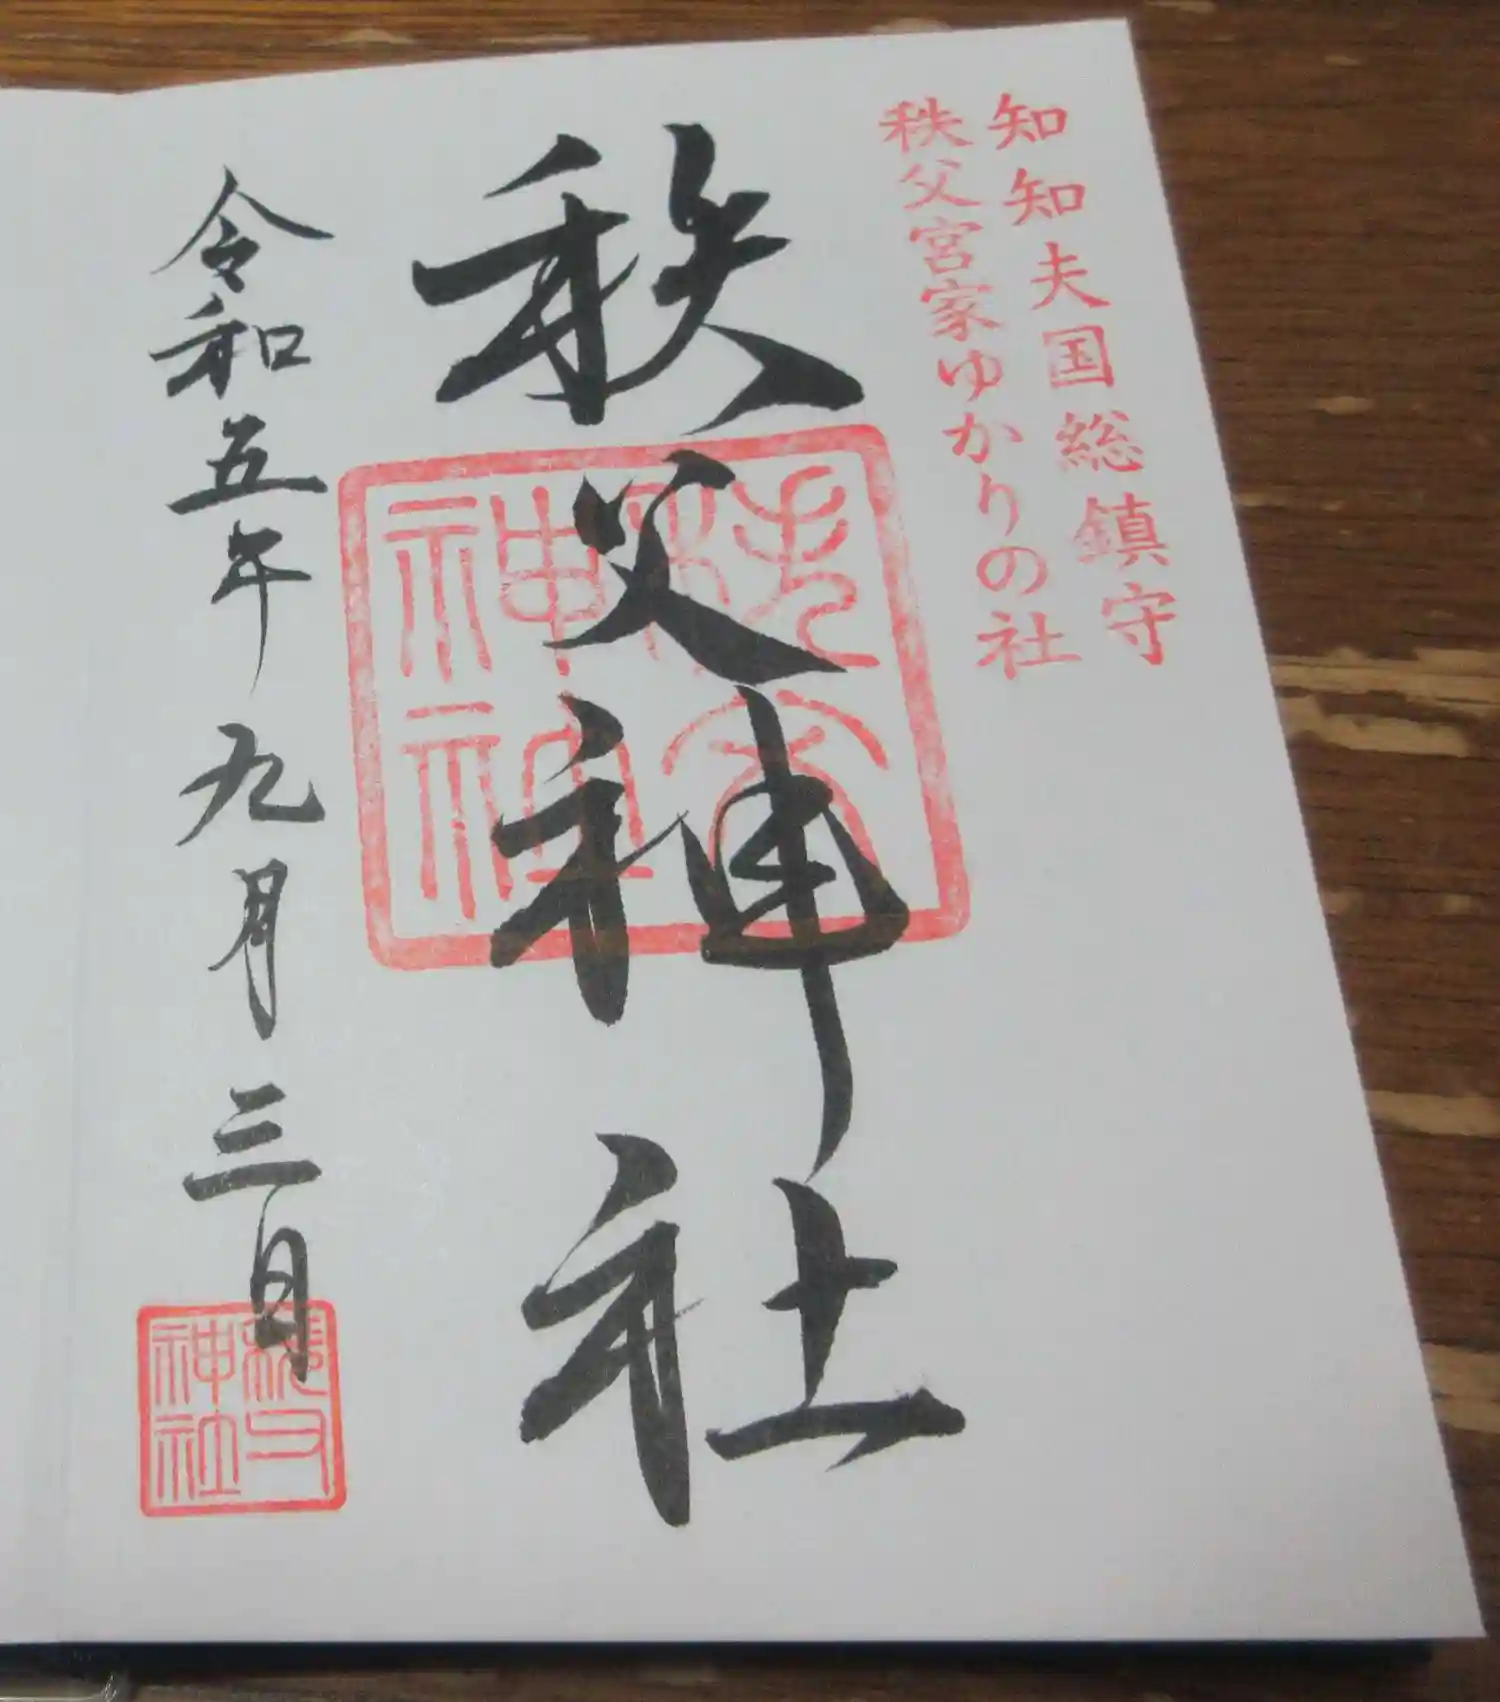 知知夫国総鎮守
秩父宮家ゆかりの社
秩父神社
令和五年九月三日
秩父神社